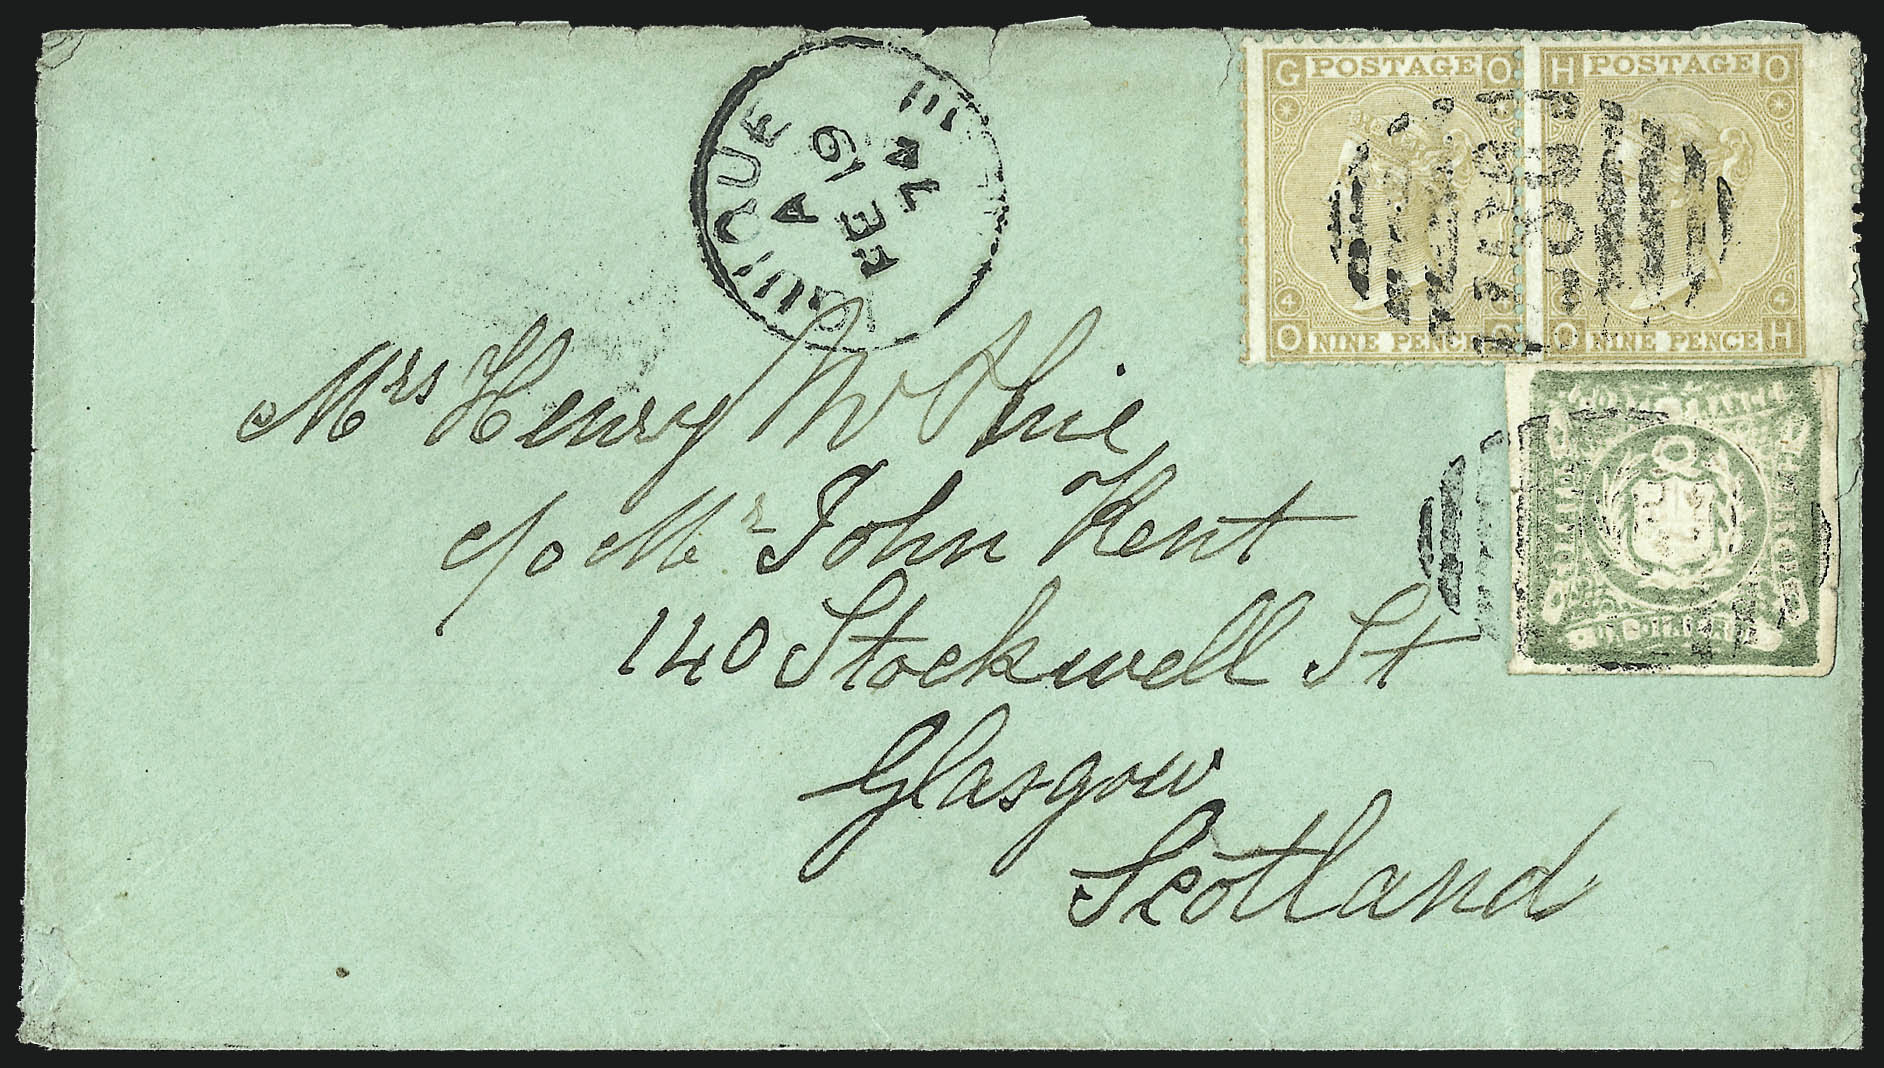 IQUIQUE
A
FE 19
74
G POSTAGE O
4 4
O NINE PENCE G
H POSTAGE O
4
O NINE PENCE H
D87
Mrs Henry
c/o Mr John Kent
140 Stockwell St
Glasgow
Scotland